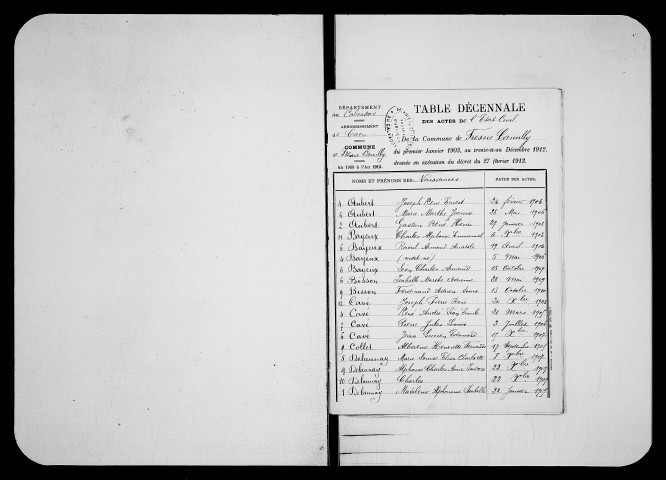 DÉPARTEMENT
du Calvados
ARRONDISSEMENT
de Caen
COMMUNE
de Fresne Camilly
An 1903 à l'An 1913.
TABLE DÉCENNALE
DES ACTES DE l'Etat Civil
De la Commune de Fresne Camilly
du premier Janvier 1903, au trente-et-un Décembre 1912,
dressée en exécution du décret du 27 février 1913.
NOMS ET PRÉNOMS DES Naissances DATES DES ACTES.
4 Aubert Joseph René Ernest 24 février 1904
6 Aubert Marie Marthe Jeanne 25 Mai
2 Aubert Gaston René Henri 29 Janvier
11 Bayeux Charles Alphonse Emmanuel
5 Bayeux Raoul Armand Anatole 19 Avril
4 Bayeux 5 Mai
6 Bayeux Léon Charles Armand 15 Octobre 1909
6 Bisson Isabelle Marthe Adrienne 28 Mai 1909
9 Bisson Ferdinand Adrien 15 Octobre
12 Cavé Joseph Pierre René 20 Xbre
4 Cavé René André 21 Mars
7 Cavé Pierre Jules Louis 3 Juillet
6 Cavé Jean Lucien Edouard Xbre
4 Collet Albertine Henriette 19 Septembre
5 Delaunay Marie Louise Charlotte 8
9 Delaunay Alphonse Charles Aimé 22 Xbre
10 Delaunay Charles 22
1 Delaunay Madeleine Alphonsine Isabelle Janvier